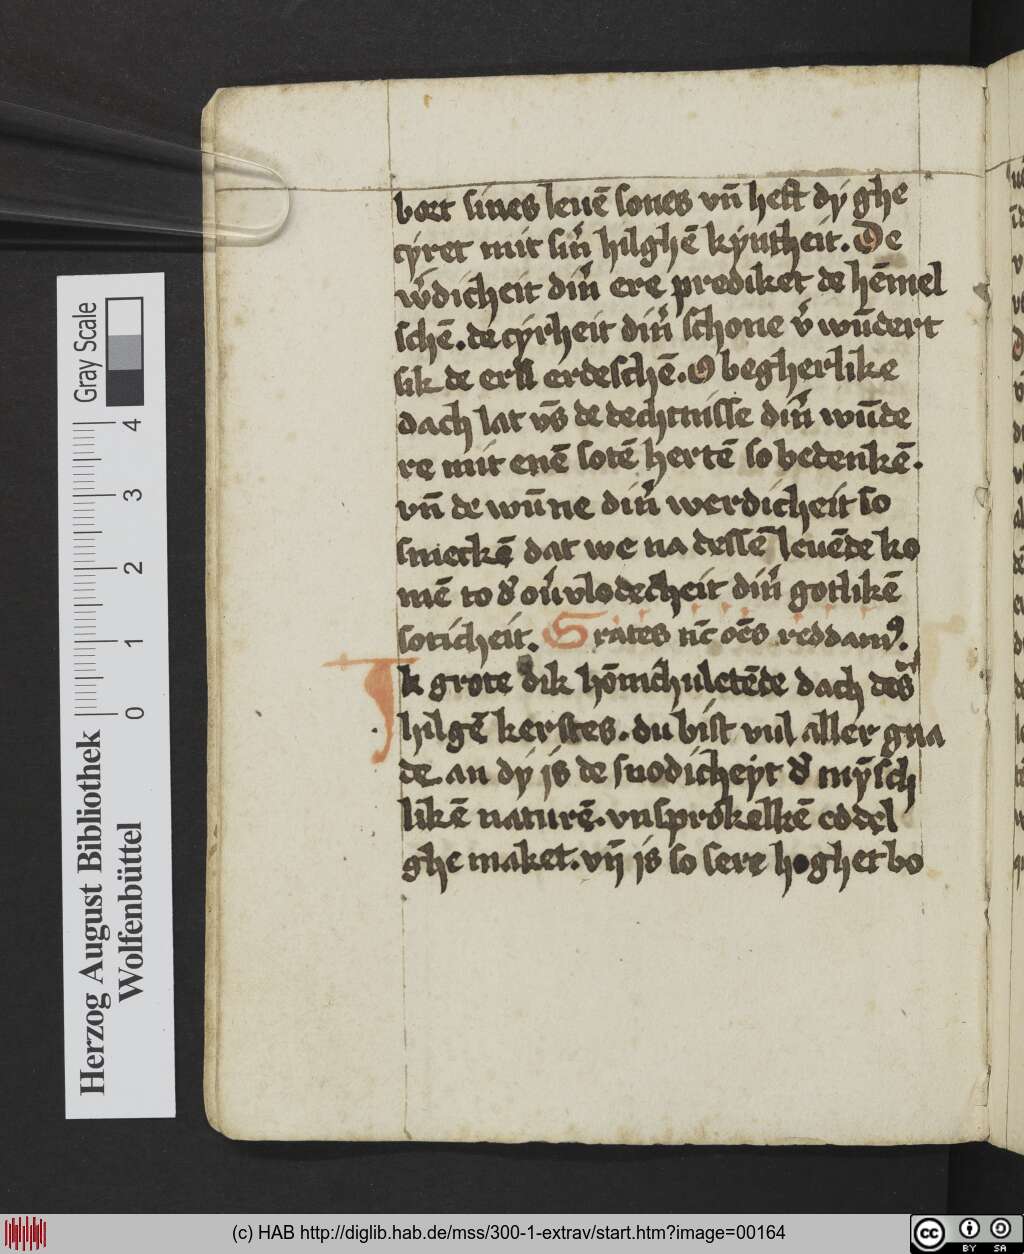 bort sines leuē sones vn̄ heft dy ghe
cyret mit sin̄ hilghē kyntheit. De
w̄dicheit din̄ ere prediket de hēmel
schē. de cyrheit din̄ schone v̄ wūdert
sik de erdeschē. O begherlike
dach lat vs̄ de dechtnisse din̄ wūde
re mit enē sotē hertē so bedenkē.
vn̄ de wūne din̄ werdicheit so
smeckē dat we na dessē leuēde ko
mē to d' ou'vlodecheit din̄ gotlikē
soticheit. Grates nc̄ oēs reddam9.
Ik grote dik hōmchuletēde dach des
hilgē kerstes. du bist vul aller gna
de an dy is de suodicheyt d' mȳsch
likē naturē. vnsprokelkē
ghe maket. vn̄ is so sere hoghet bo
Herzog August Bibliothek
Wolfenbüttel
Gray Scale
0 1 2 3 4
(c) HAB http://diglib.hab.de/mss/300-1-extrav/start.htm?image=00164
cc BY SA